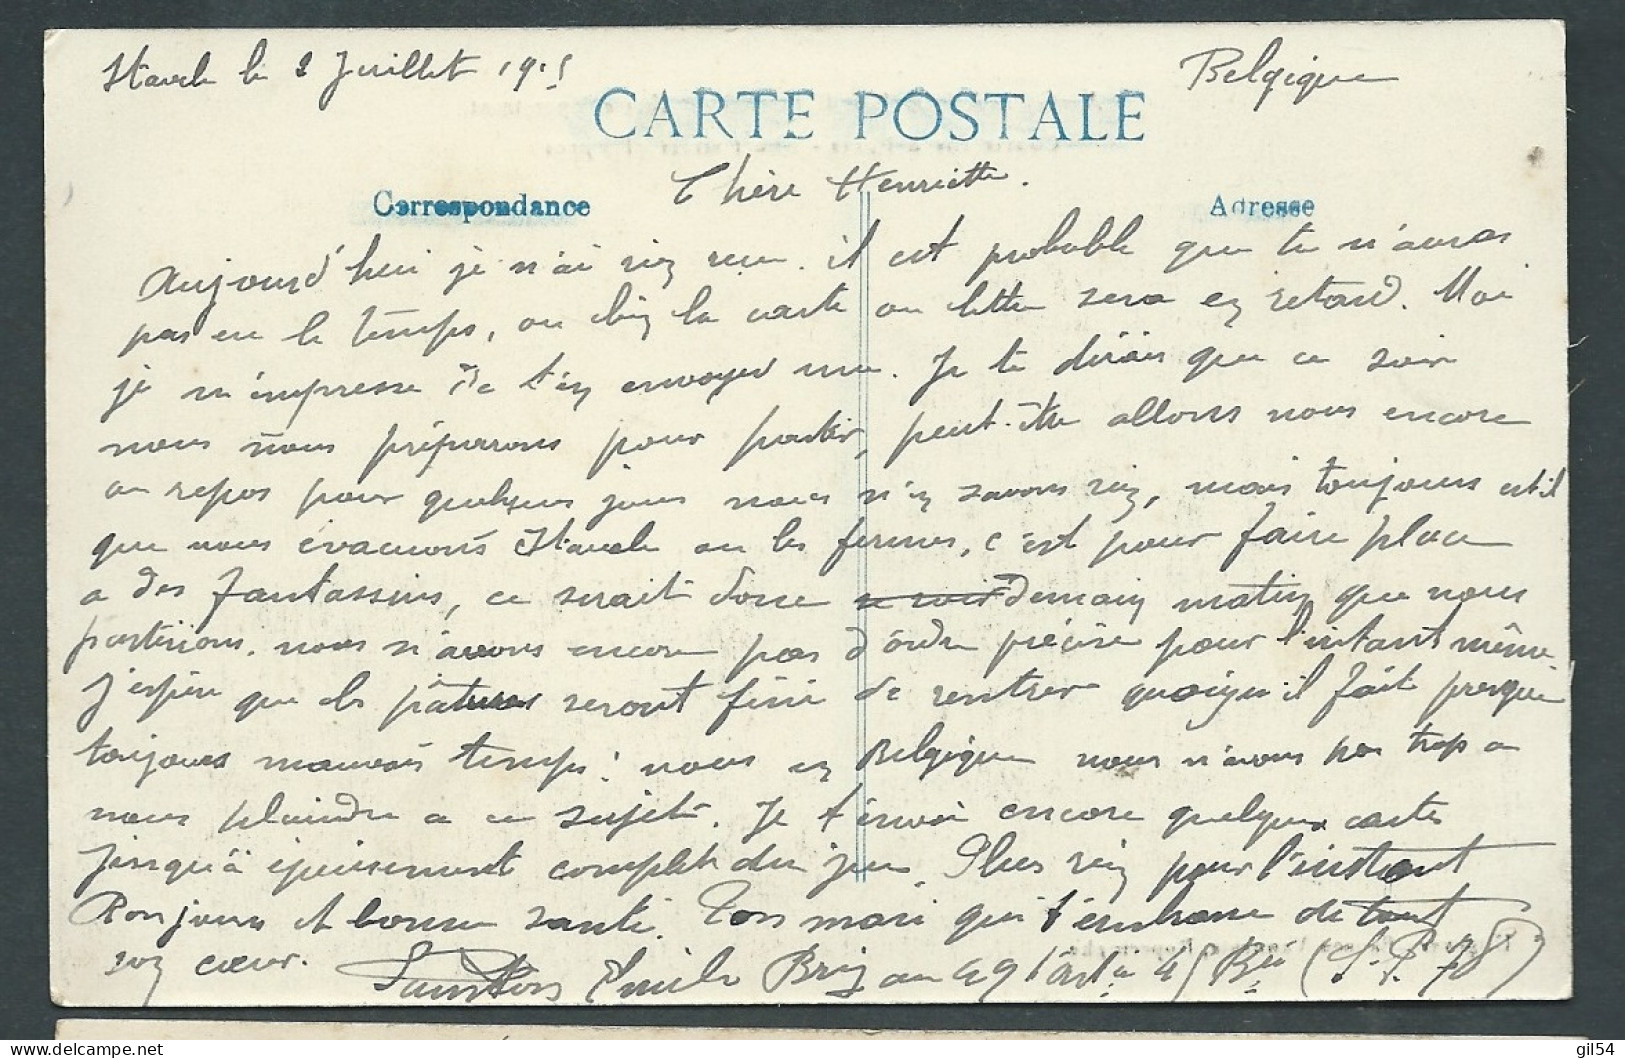 Stavele le 2 Juillet 1915
Belgique
CARTE POSTALE
Correspondance
Adresse
Chère Henriette.
Aujourd'hui je n'ai rien recu. il est probable que tu n'auras
pas eu le temps, ou bien la carte ou lettre sera en retard. Moi
je m'empresse de t'en envoyer une. Je te dirais que ce soir
nous nous préparons pour partir, peut-être allons nous encore
au repos pour quelques jours nous n'en savons rien, mais toujours est il
que nous évacuons Stavele ou les fermes, c'est pour faire place
a des fantassins, ce serait donc ce soir demain matin que nous
partirions. nous n'avons encore pas d'ordre précise pour l'instant même.
j'espère que les pâtures seront fini de rentrer quoiqu'il fait presque
toujours mauvais temps; nous en Belgique nous n'avons pas trop a
nous plaindre a ce sujet. Je t'envoi encore quelques cartes
jusqu'à épuisement complet du jeu. Plus rien pour l'instant
Bonjours et bonne santé. Ton mari qui t'embrasse de tout
son cœur.
Emile Brig au 49 d'art ie 45 Bie (S. P. 78)
gil54
delcampe.net